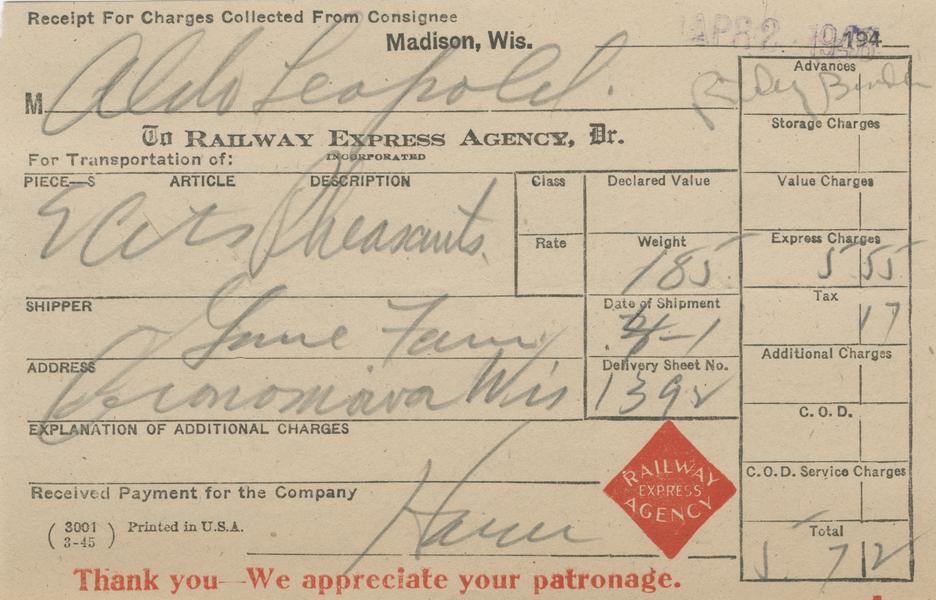 Receipt For Charges Collected From Consignee
Madison, Wis. APR 2 194
M Aldo Leopold.
To RAILWAY EXPRESS AGENCY, Dr.
INCORPORATED
For Transportation of:
PIECE—S ARTICLE DESCRIPTION
Pheasants.
Class
Rate
Declared Value
Weight
185
SHIPPER
Game Farm
Date of Shipment
4-1
ADDRESS
Wis
Delivery Sheet No.
1392
EXPLANATION OF ADDITIONAL CHARGES
Received Payment for the Company
RAILWAY
EXPRESS
AGENCY
( 3001 ) Printed in U.S.A.
3-45
Thank you—We appreciate your patronage.
Advances
Storage Charges
Value Charges
Express Charges
5 55
Tax
17
Additional Charges
C. O. D.
C.O.D. Service Charges
Total
5. 72